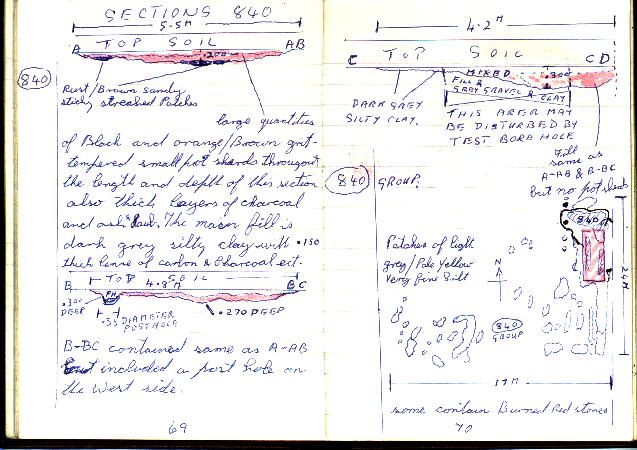 SECTIONS 840
5.5M
A TOP SOIL AB
.200
840
Rust/Brown Sandy
silty streaked Patches
large quantities
of Black and orange/Brown grit-
tempered small pot shards througout
the length and depth of this section
also thick layers of charcoal
and ash. The major fill is
dark grey silty clay with .150
thick lense of carbon & charcoal ect.
B TOP SOIL BC
4.8M
PH
.300
DEEP
.55 DIAMETER
POST HOLE
.270 DEEP
B-BC contained same as A-AB
but included a post hole on
the West side.
69
4.2M
C TOP SOIL CD
MIXED
FILL &
GREY GRAVEL & CLAY
.300
DARK GREY
SILTY CLAY.
THIS AREA MAY
BE DISTURBED BY
TEST BORE HOLE
Fill
same as
A-AB & B-BC
but no pot sheds
840 GROUP.
840
Patches of light
grey/Pale Yellow
Very fine Silt
N
24M
840
GROUP
17M
some contain Burned Red stones
70